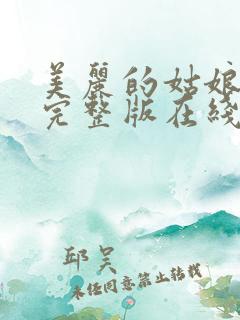 美麗的姑娘
完整版在綫
邱吴
未经同意禁止转载